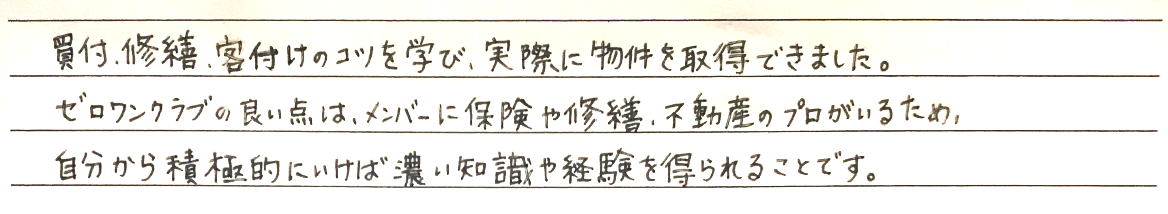 買付、修繕、客付けのコツを学び、実際に物件を取得できました。
ゼロワンクラブの良い点は、メンバーに保険や修繕、不動産のプロがいるため、
自分から積極的にいけば濃い知識や経験を得られることです。